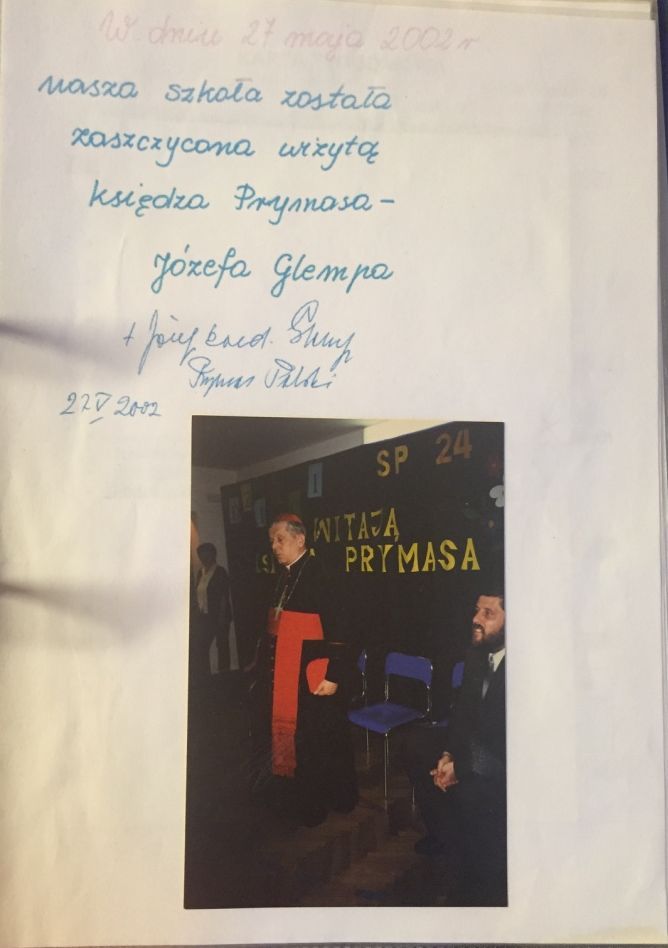 W dniu 27 maja 2002 r
nasza szkoła została
zaszczycona wizytą
księdza Prymasa-
Józefa Glempa
+ Józef kard. Glemp
Prymas Polski
27 V 2002
SP 24
WITAJĄ
PRYMASA